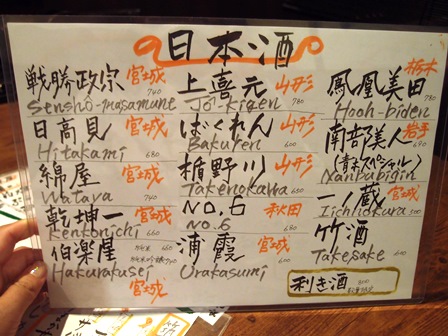 日本酒
戦勝政宗 宮城
Senshô-masamune 740
日高見 宮城
Hitakami 680
綿屋 宮城
Wataya 740
乾坤一 宮城
Kenkonichi 660
伯楽星
Hakurakusei 純米吟醸 740
宮城
上喜元 山形
Jô-kigen 780
ばくれん 山形
Bakuren 600
楯野川 山形
Tatenokawa 650
NO.6 秋田
NO.6 680
浦霞 宮城
Urakasumi 600
鳳凰美田 栃木
Hooh-biden 780
南部美人 岩手
(青木スペシャル) 690
Nanbubigin
一ノ蔵 宮城
Iichnokura 500
竹酒
Takesake 600
利き酒